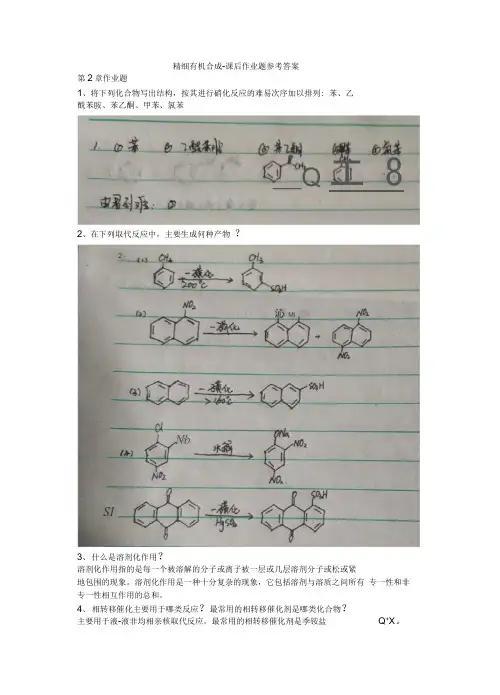 精细有机合成-课后作业题参考答案
第2章作业题
1、将下列化合物写出结构，按其进行硝化反应的难易次序加以排列: 苯、乙
酰苯胺、苯乙酮、甲苯、氯苯
1. ① 苯 ② 乙酰苯胺 ③ 苯乙酮
CH3
Q 8
由易到难: ②
2、在下列取代反应中，主要生成何种产物 ？
2. (1) CH3 一磺化 200℃ CH3 SO3H
(2) NO2 一硝化 NO2 + NO2 NO2
(3) 一磺化 160℃ SO3H
(4) Cl Nb NO2 水解 ONa NO2 NO2
SI O O 一磺化 HgSO4 O SO3H O
3、什么是溶剂化作用？
溶剂化作用指的是每一个被溶解的分子或离子被一层或几层溶剂分子或松或紧
地包围的现象。溶剂化作用是一种十分复杂的现象，它包括溶剂与溶质之间所有 专一性和非
专一性相互作用的总和。
4、 相转移催化主要用于哪类反应？最常用的相转移催化剂是哪类化合物？
主要用于液-液非均相亲核取代反应。最常用的相转移催化剂是季铵盐 Q+X。